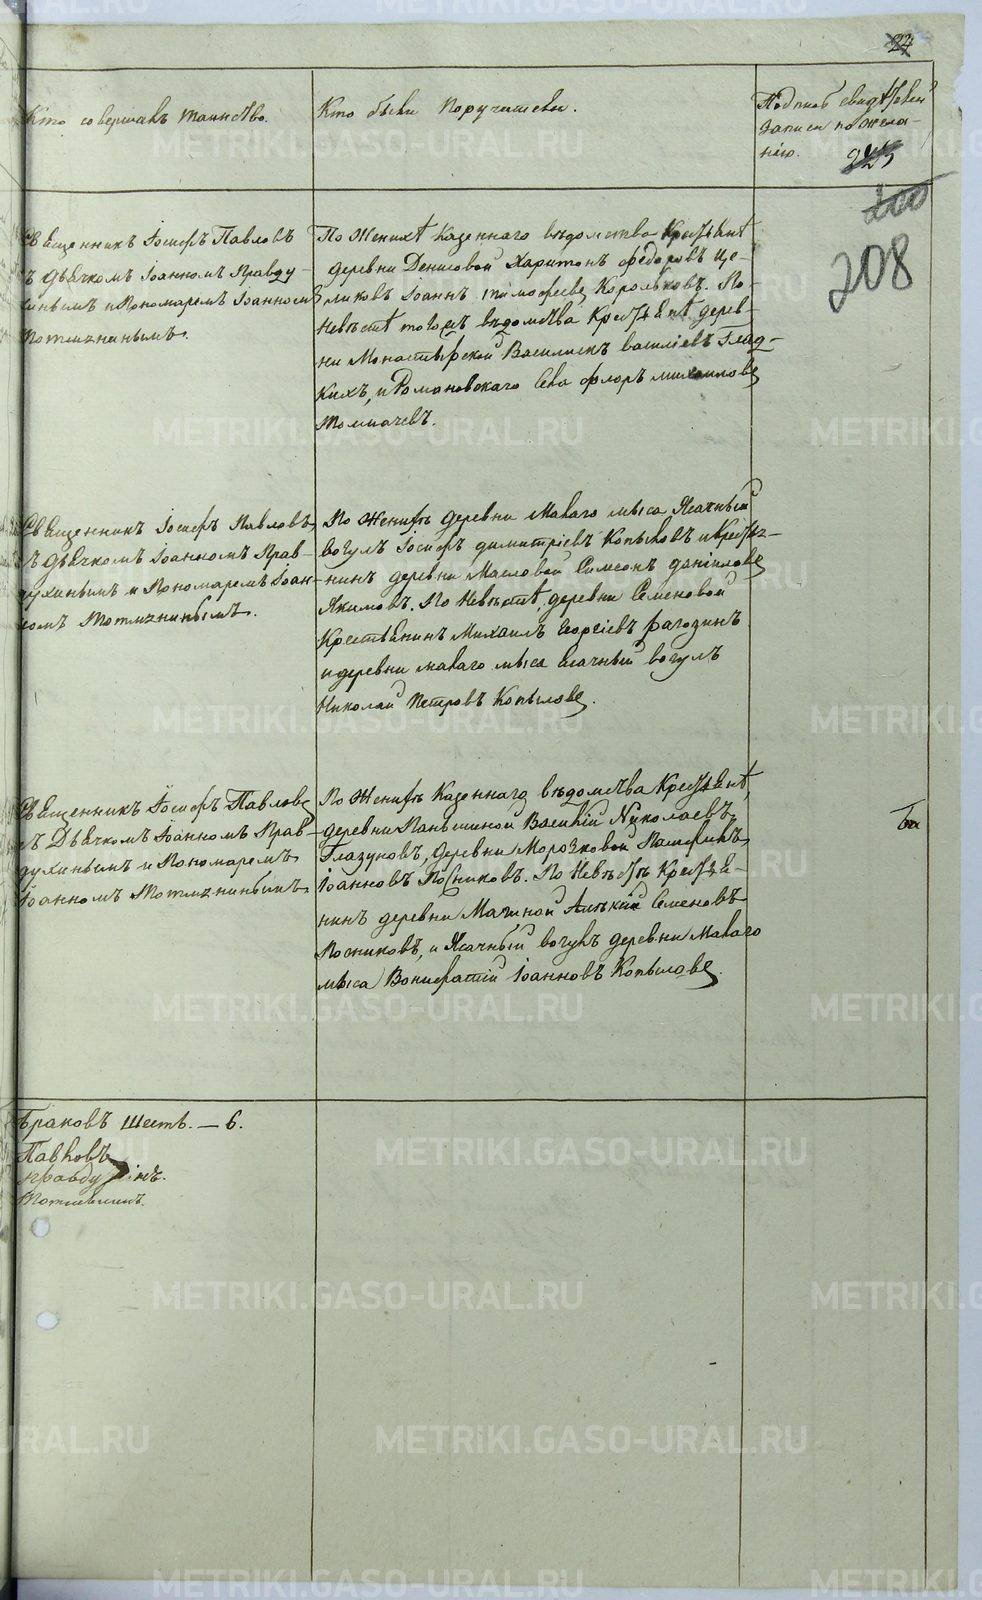 24
Кто совершалъ таинство.
Кто были Поручители.
Подпись свидѣтелей
записи по жела-
нію.
225
200
208
Священникъ Іосифъ Павловъ
съ дьячкомъ Іоанномъ Правду-
хинымъ и Пономаремъ Іоанномъ
По Женихѣ Казеннаго вѣдомства Крестьянѣ
деревни Денисовой Харитонъ Федоровъ Це-
ликовъ Іоаннъ Тимофеевъ Корольковъ. По
Невѣстѣ тогожъ вѣдомства Крестьянѣ дерев-
ни Монастырской Василискъ Василіевъ Глад-
кихъ, и Романовскаго Села Флоръ Михаиловъ
Толмачевъ.
Священникъ Іосифъ Павловъ
съ дьячкомъ Іоанномъ Прав-
духинымъ и Пономаремъ Іоан-
номъ
По Женихѣ деревни Малаго мыса Ясачный
вогулъ Іосифъ Димитріевъ Копыловъ и Кресть-
нинъ деревни Масловой Симеонъ Даніиловъ
Якимовъ. По Невѣстѣ, деревни Семеновой
Крестьянинъ Михаилъ Георгіевъ Рагозинъ
и деревни малаго мыса ясачный вогулъ
Николай Петровъ Копыловъ.
Священникъ Іосифъ Павловъ
съ Дьячкомъ Іоанномъ Прав-
духинымъ и Пономаремъ
Іоанномъ
По Женихѣ Казеннаго вѣдомства Крестьянѣ,
деревни Паньшиной Василій Николаевъ
Глазуновъ, деревни Морозковой
Іоанновъ Посниковъ. По Невѣстѣ Крестья-
нинъ деревни Семеновъ
Посниковъ, и Ясачный вогулъ деревни Малаго
мыса Вонифатій Іоанновъ Копыловъ.
Браковъ шесть. — 6.
Павловъ
Правдухинъ.
METRIKI.GASO-URAL.RU